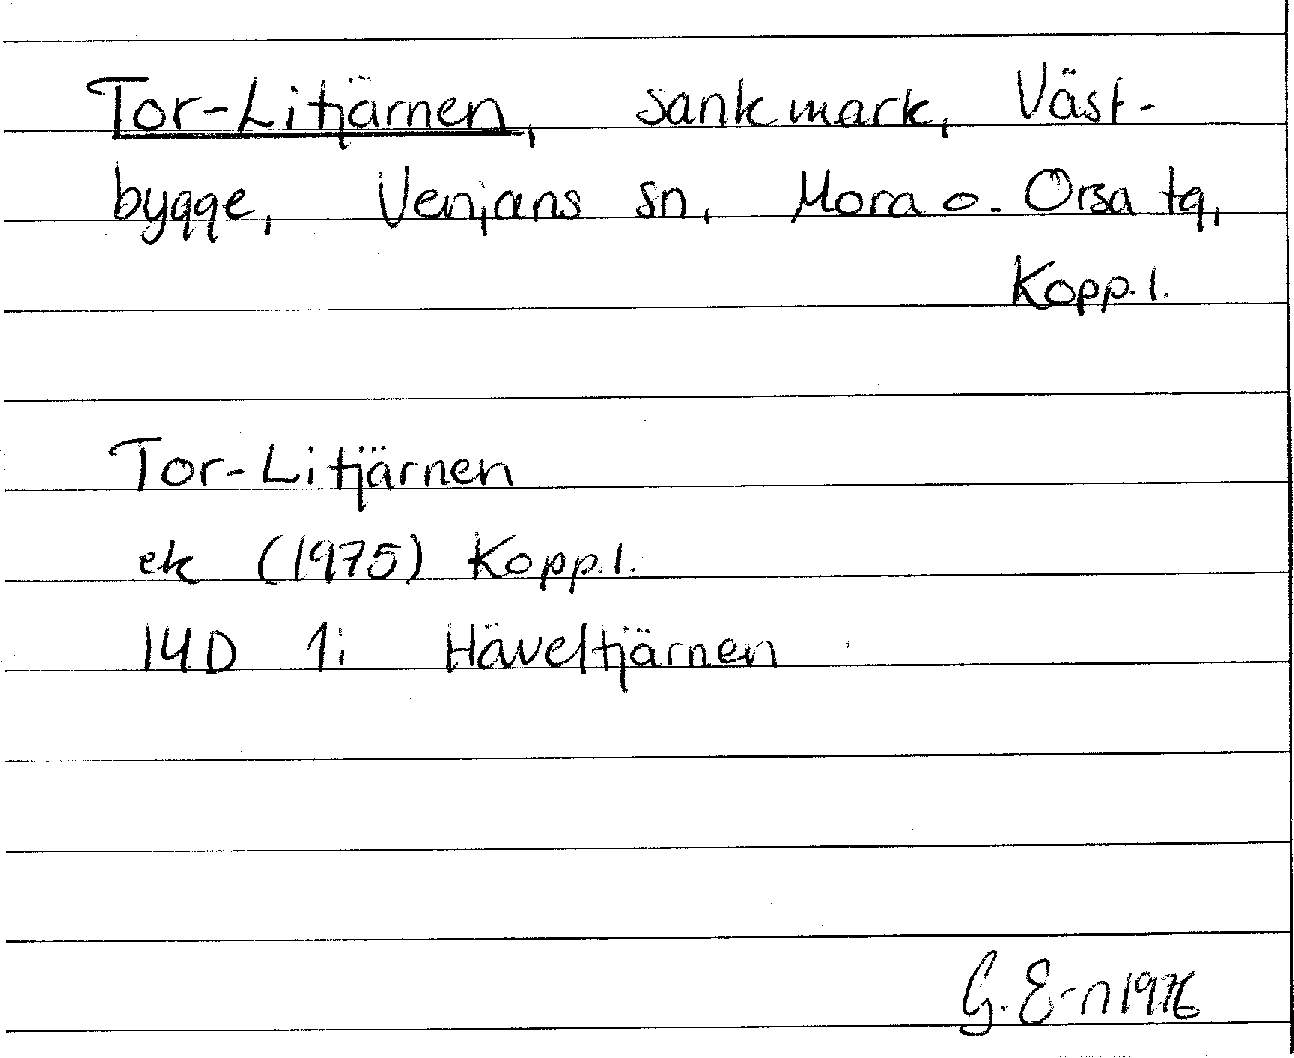 Tor-Litjärnen, sankmark, Väst-
bygge, Venjans sn, Mora o. Orsa tg,
Kopp. l.
Tor-Litjärnen
ek (1975) Kopp. l.
14D 1i Häveltjärnen
G. E-n 1976